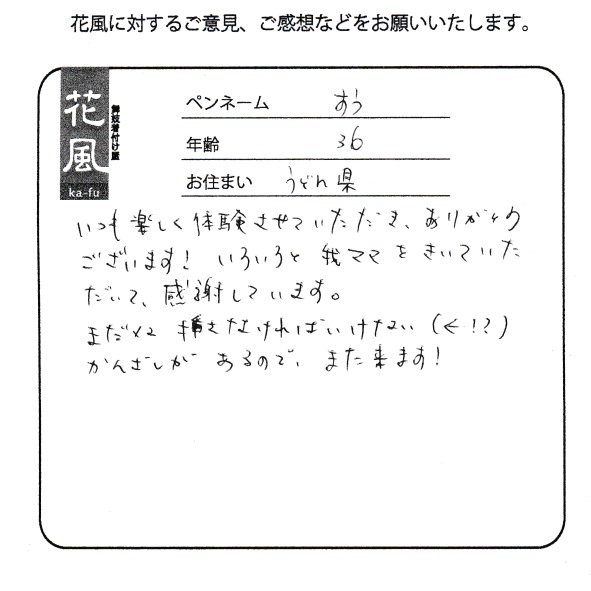 花風に対するご意見、ご感想などをお願いいたします。
花風
舞妓着付け屋
ka-fu
ペンネーム すう
年齢 36
お住まい うどん県
いつも楽しく体験させていただき、ありがとう
ございます! いろいろと我ママをきいていた
だいて、感謝しています。
まだ×2 挿さなければいけない(←!?)
かんざしが あるので、また来ます!